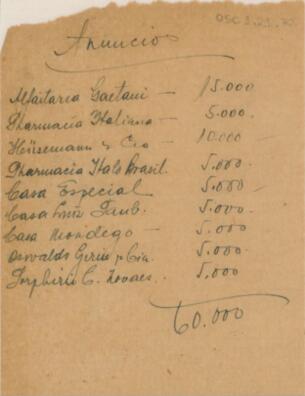 OSC 1.21.
Anuncios
Alfaitaria Gaetani — 15.000
Pharmacia Italiana — 5.000
Hüsemann & Cia — 10.000
Pharmacia Italo Brasil. 5.000
Casa Especial 5.000
Casa Taub. 5.000
Casa Mondego — 5.000
Osvaldo & Cia. 5.000
Porphirio C. Novaes. 5.000
60.000